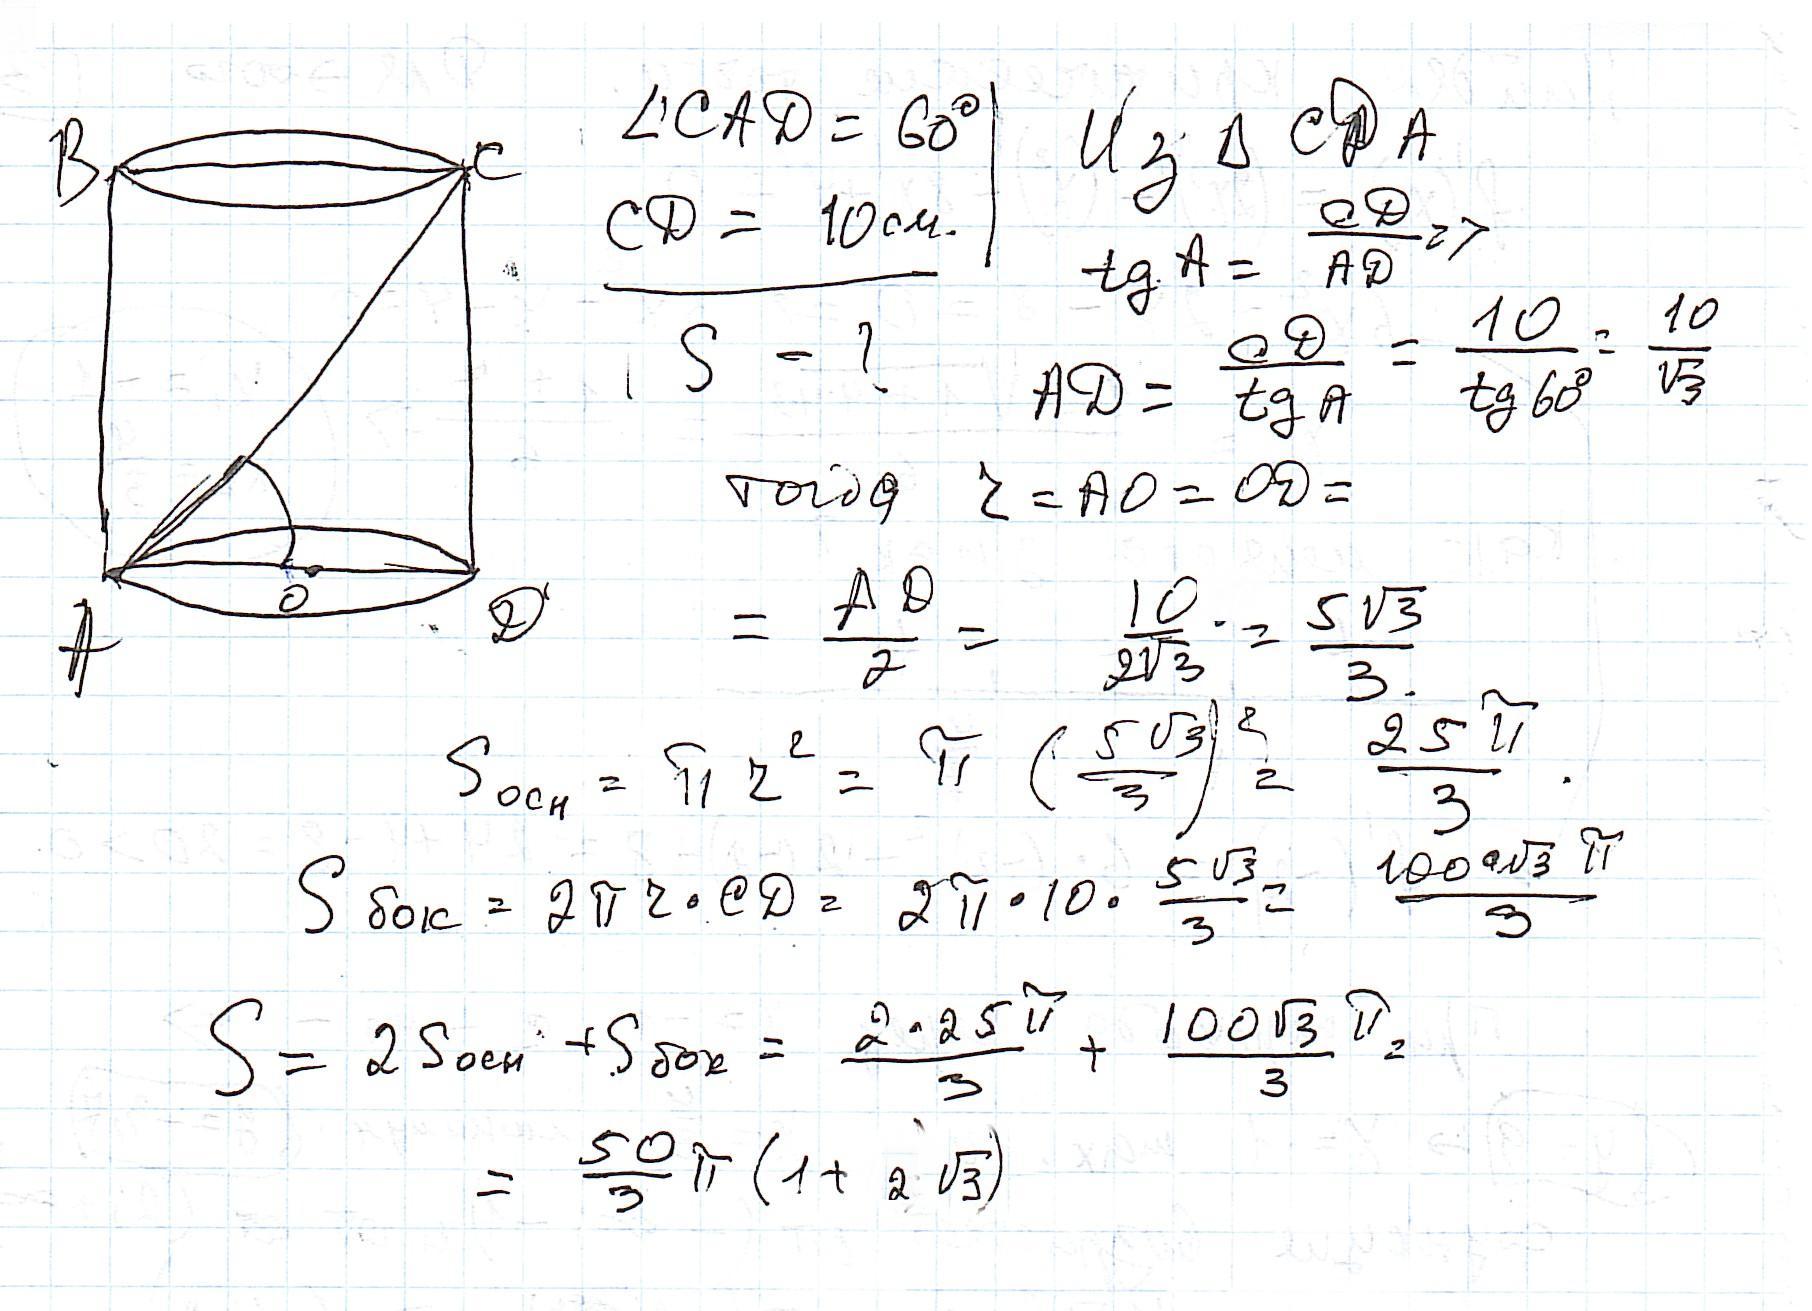 B C
∠CAD = 60°
CD = 10см.
S - ?
A O D
Из Δ CDA
tg A = CD/AD =>
AD = CD/tg A = 10/tg 60° = 10/√3
тогда r = AO = OD =
= AD/2 = 10/2√3 = 5√3/3.
Sосн = π r² = π (5√3/3)² = 25π/3.
Sбок = 2πr·CD = 2π·10·5√3/3 = 100√3 π/3
S = 2Sосн + Sбок = 2·25π/3 + 100√3/3 π =
= 50/3 π (1 + 2√3)